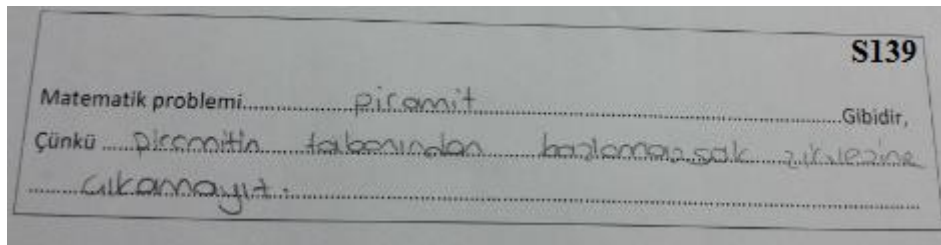 S139
Matematik problemi..................piramit..................Gibidir,
Çünkü ..... piramitin tabanından başlamazsak zirvesine
................çıkamayız.................